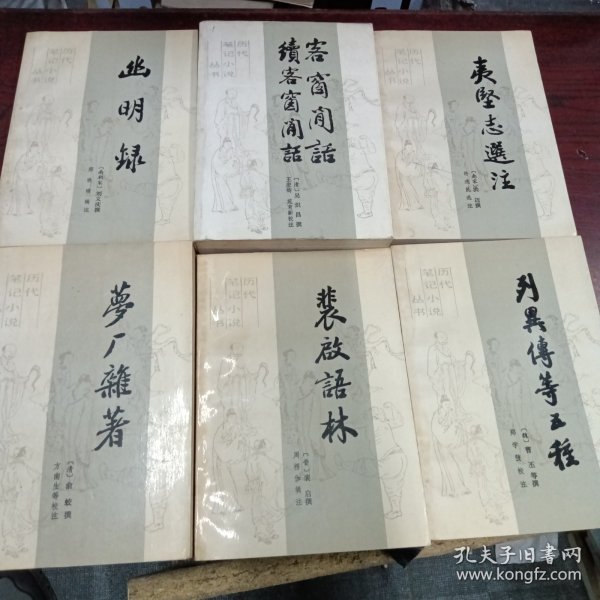 历代
笔记小说
丛书
幽明録
〔南朝宋〕刘义庆撰
郑晚晴辑注
历代
笔记小说
丛书
客窗閒話
續客窗閒話
〔清〕吴炽昌撰
王宏钧 苑育新校注
历代
笔记小说
丛书
夷堅志選注
〔南宋〕洪迈撰
历代
笔记小说
丛书
夢厂雜著
〔清〕俞蛟撰
方南生等校注
历代
笔记小说
丛书
裴啟語林
〔晋〕裴启撰
周楞伽辑注
历代
笔记小说
丛书
列異傳等五種
〔魏〕曹丕等撰
郑学弢校注
孔夫子旧书网
www.kongfz.com